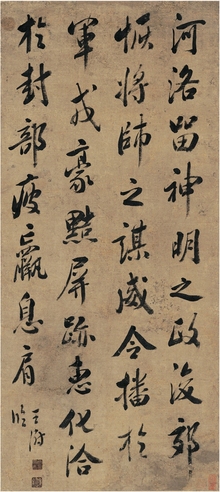 河洛留神明之政浚郊
振將帥之謀威令播於
軍戎豪黠屏跡惠化洽
於封部疲羸息肩
王澍臨